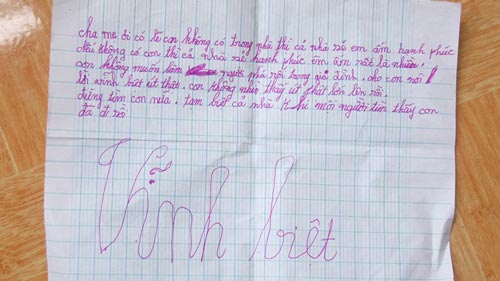 cha mẹ ơi có lẽ con không có trong nhà thì cả nhà sẽ em ấm hạnh phúc
nếu không có con thì cả nhà sẽ hạnh phúc êm ấm rất là nhiều.
con không muốn làm người phá rối trong gia đình. cho con nói 1
lời vĩnh biệt út thật. con không nhìn thấy út phát lớn lên rồi.
đừng tìm con nữa. tạm biệt cả nhà khi mọi người tìm thấy con
đã đi rồi
Vĩnh biệt